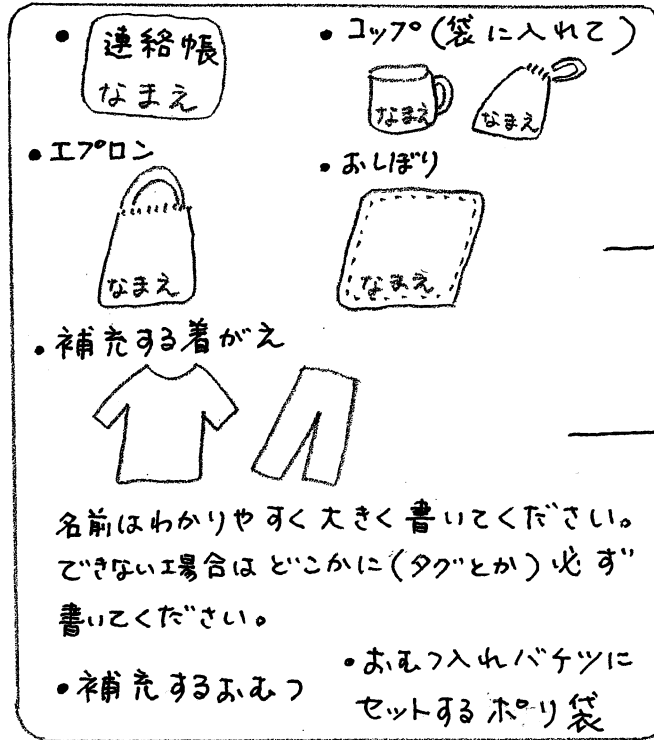 • 連絡帳
なまえ
• コップ(袋に入れて)
なまえ
なまえ
• エプロン
なまえ
• おしぼり
なまえ
• 補充する着がえ
名前はわかりやすく大きく書いてください。
できない場合はどこかに(タグとか)必ず
書いてください。
• 補充するおむつ
• おむつ入れバケツに
セットするポリ袋